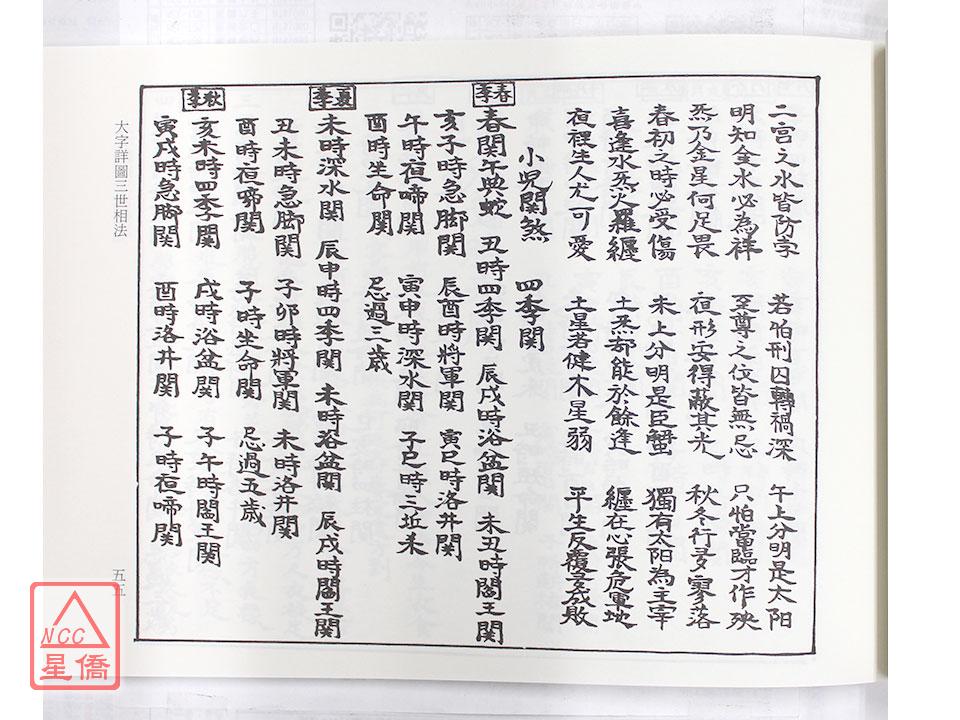 二宮之水皆防学 若怕刑囚轉禍深 午上分明是太阳
明知金水必為祥 至尊之位皆無忌 只怕當臨才作殃
炁乃金星何足畏 夜形妥得蔽其光 秋冬行 寥落
春初之時必受傷 未上分明是臣蟹 獨有太阳為主宰
喜逢水炁火羅纏 土炁都能於餘逢 纏在心張危軍地
夜裡生人尤可愛 土星若健木星弱 平生反覆 成敗
小児関煞 四季関
春季
春関午與蛇 丑時四季関 辰戌時浴盆関 未丑時閻王関
亥子時急脚関 辰酉時將軍関 寅巳時洛井関
午時夜啼関 寅申時深水関 子巳時三丘
酉時生命関 忌過三歲
夏季
未時深水関 辰申時四季関 未時浴盆関 辰戌時閻王関
丑未時急脚関 子卯時將軍関 未時洛井関
酉時夜啼関 子時坐命関 忌過五歲
秋季
亥未時四季関 戌時浴盆関 子午時閻王関
寅戌時急脚関 酉時洛井関 子時夜啼関
大字詳圖三世相法
五五
NCC
星僑